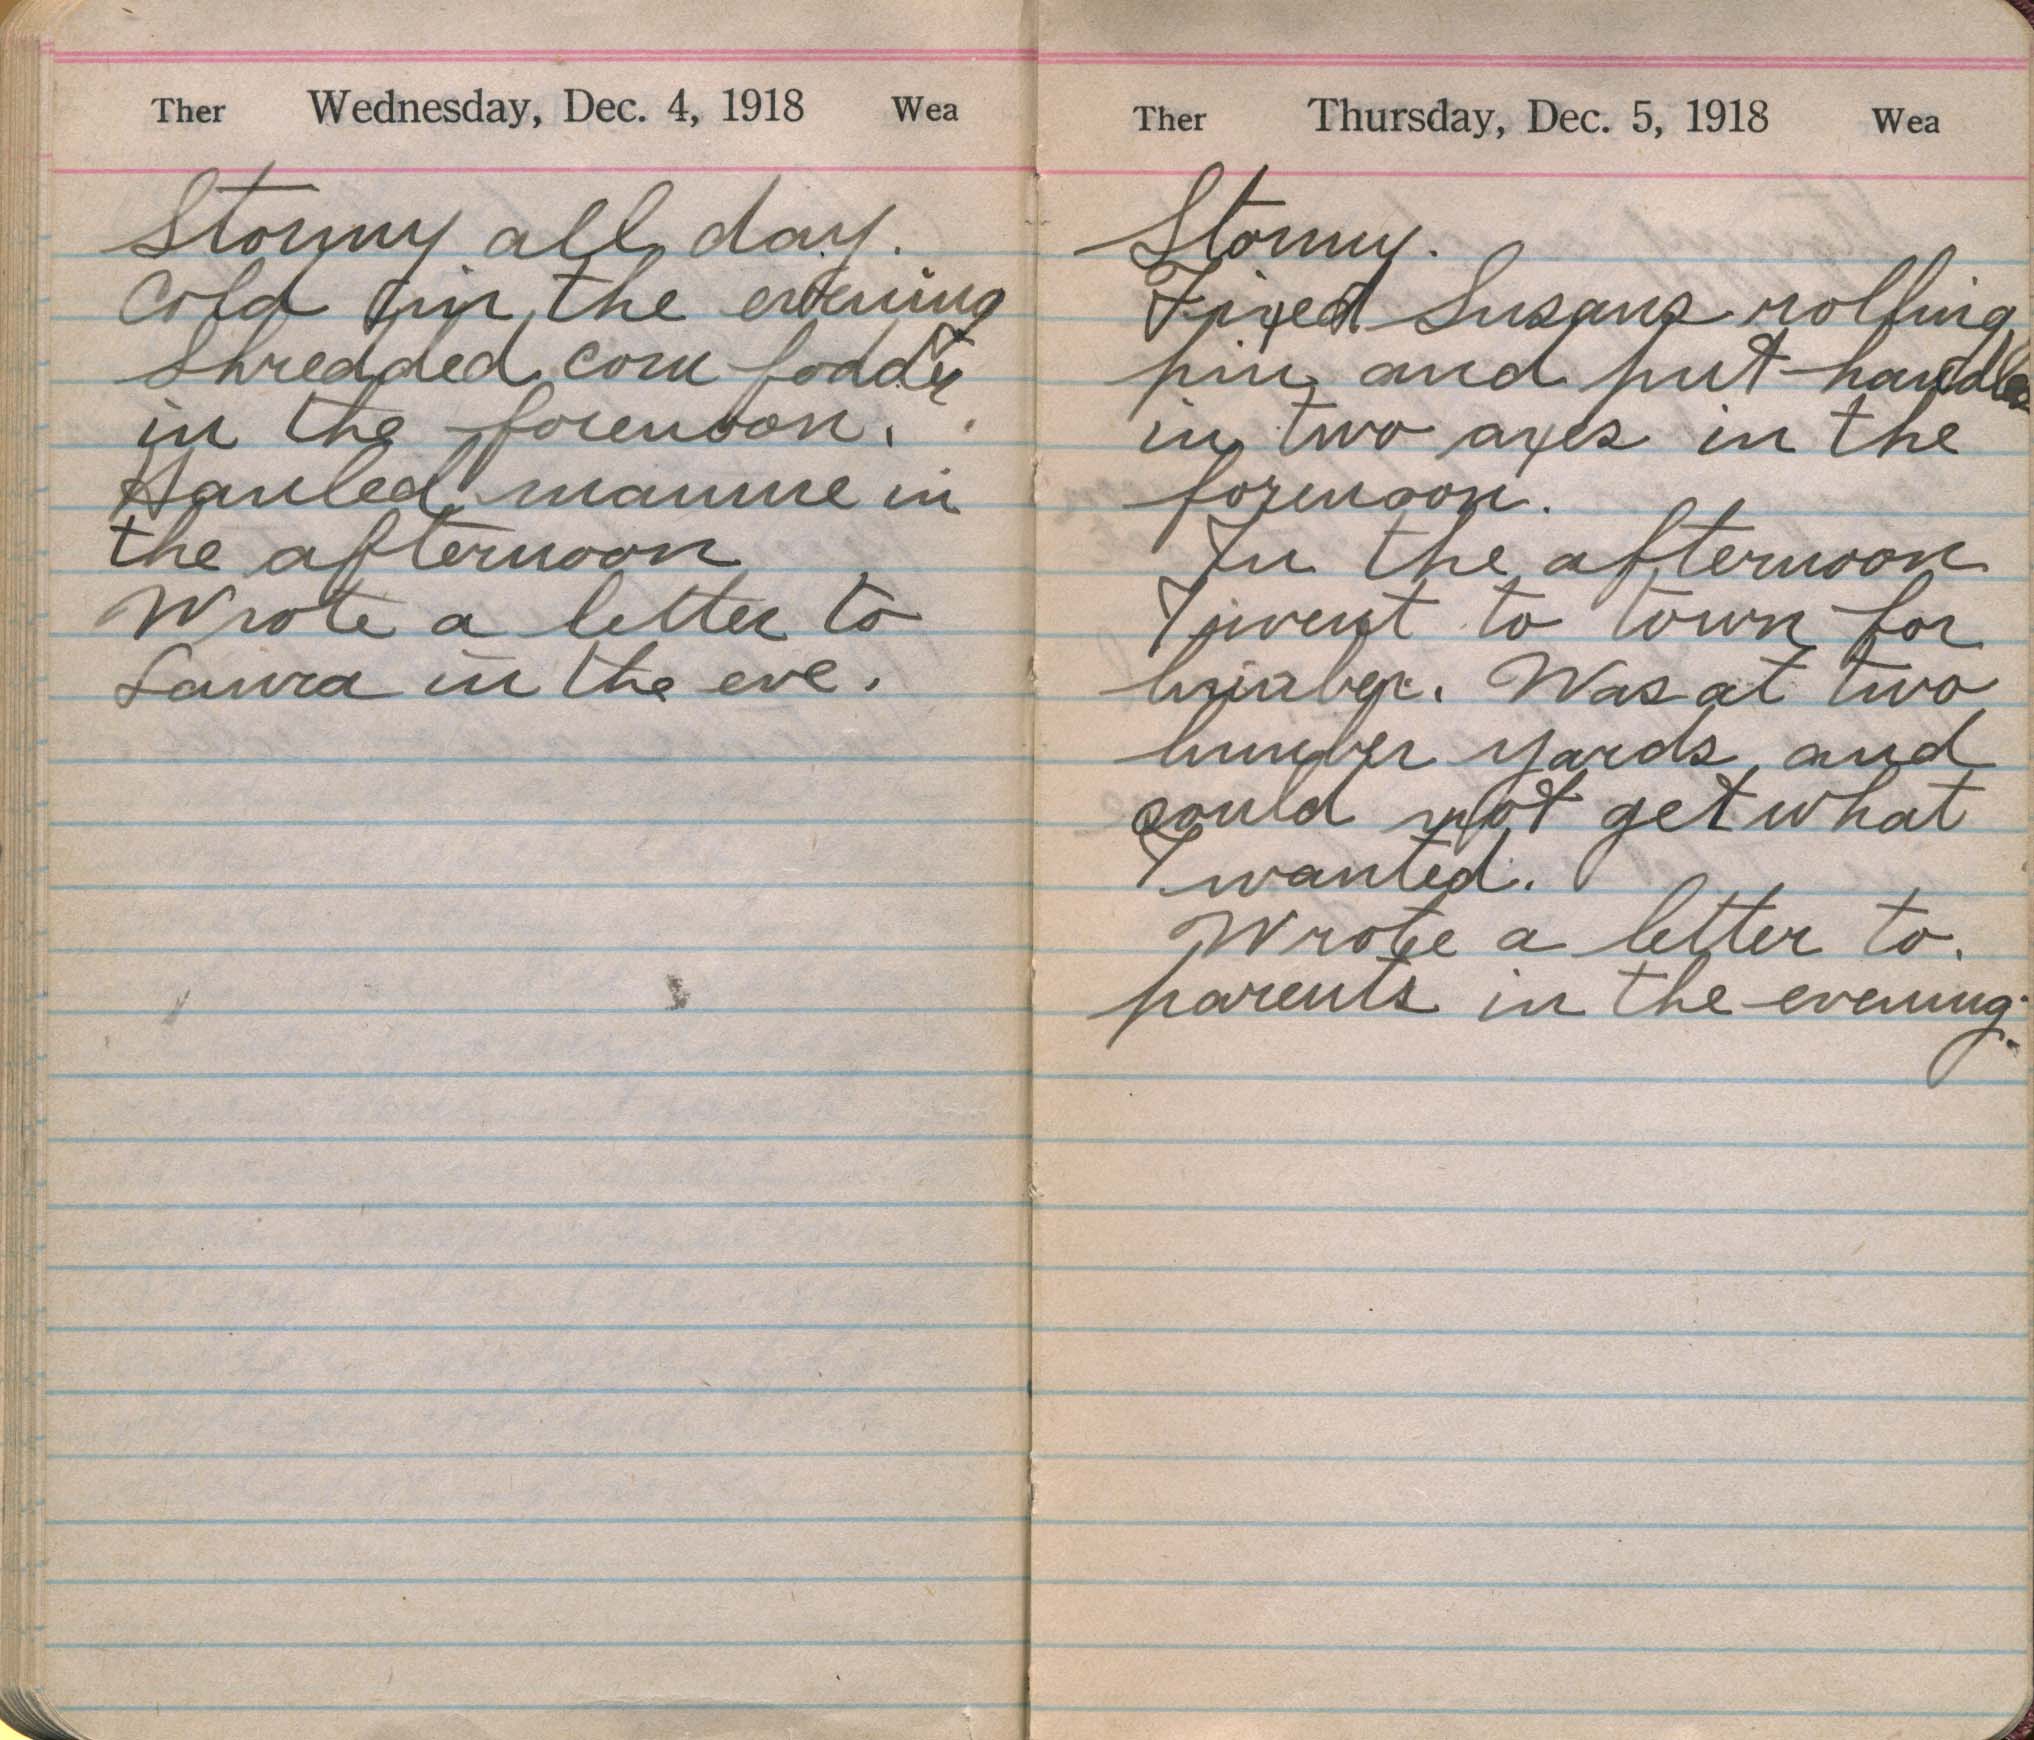 Ther Wednesday, Dec. 4, 1918 Wea
Stormy all day.
Cold in the evening
Shredded corn fodder
in the forenoon.
Hauled manure in
the afternoon
Wrote a letter to
Laura in the eve.
Ther Thursday, Dec. 5, 1918 Wea
Stormy.
Fixed Susans rolling
pin and put handles
in two axes in the
forenoon.
In the afternoon
I went to town for
lumber. Was at two
lumber yards and
could not get what
I wanted.
Wrote a letter to.
parents in the evening.